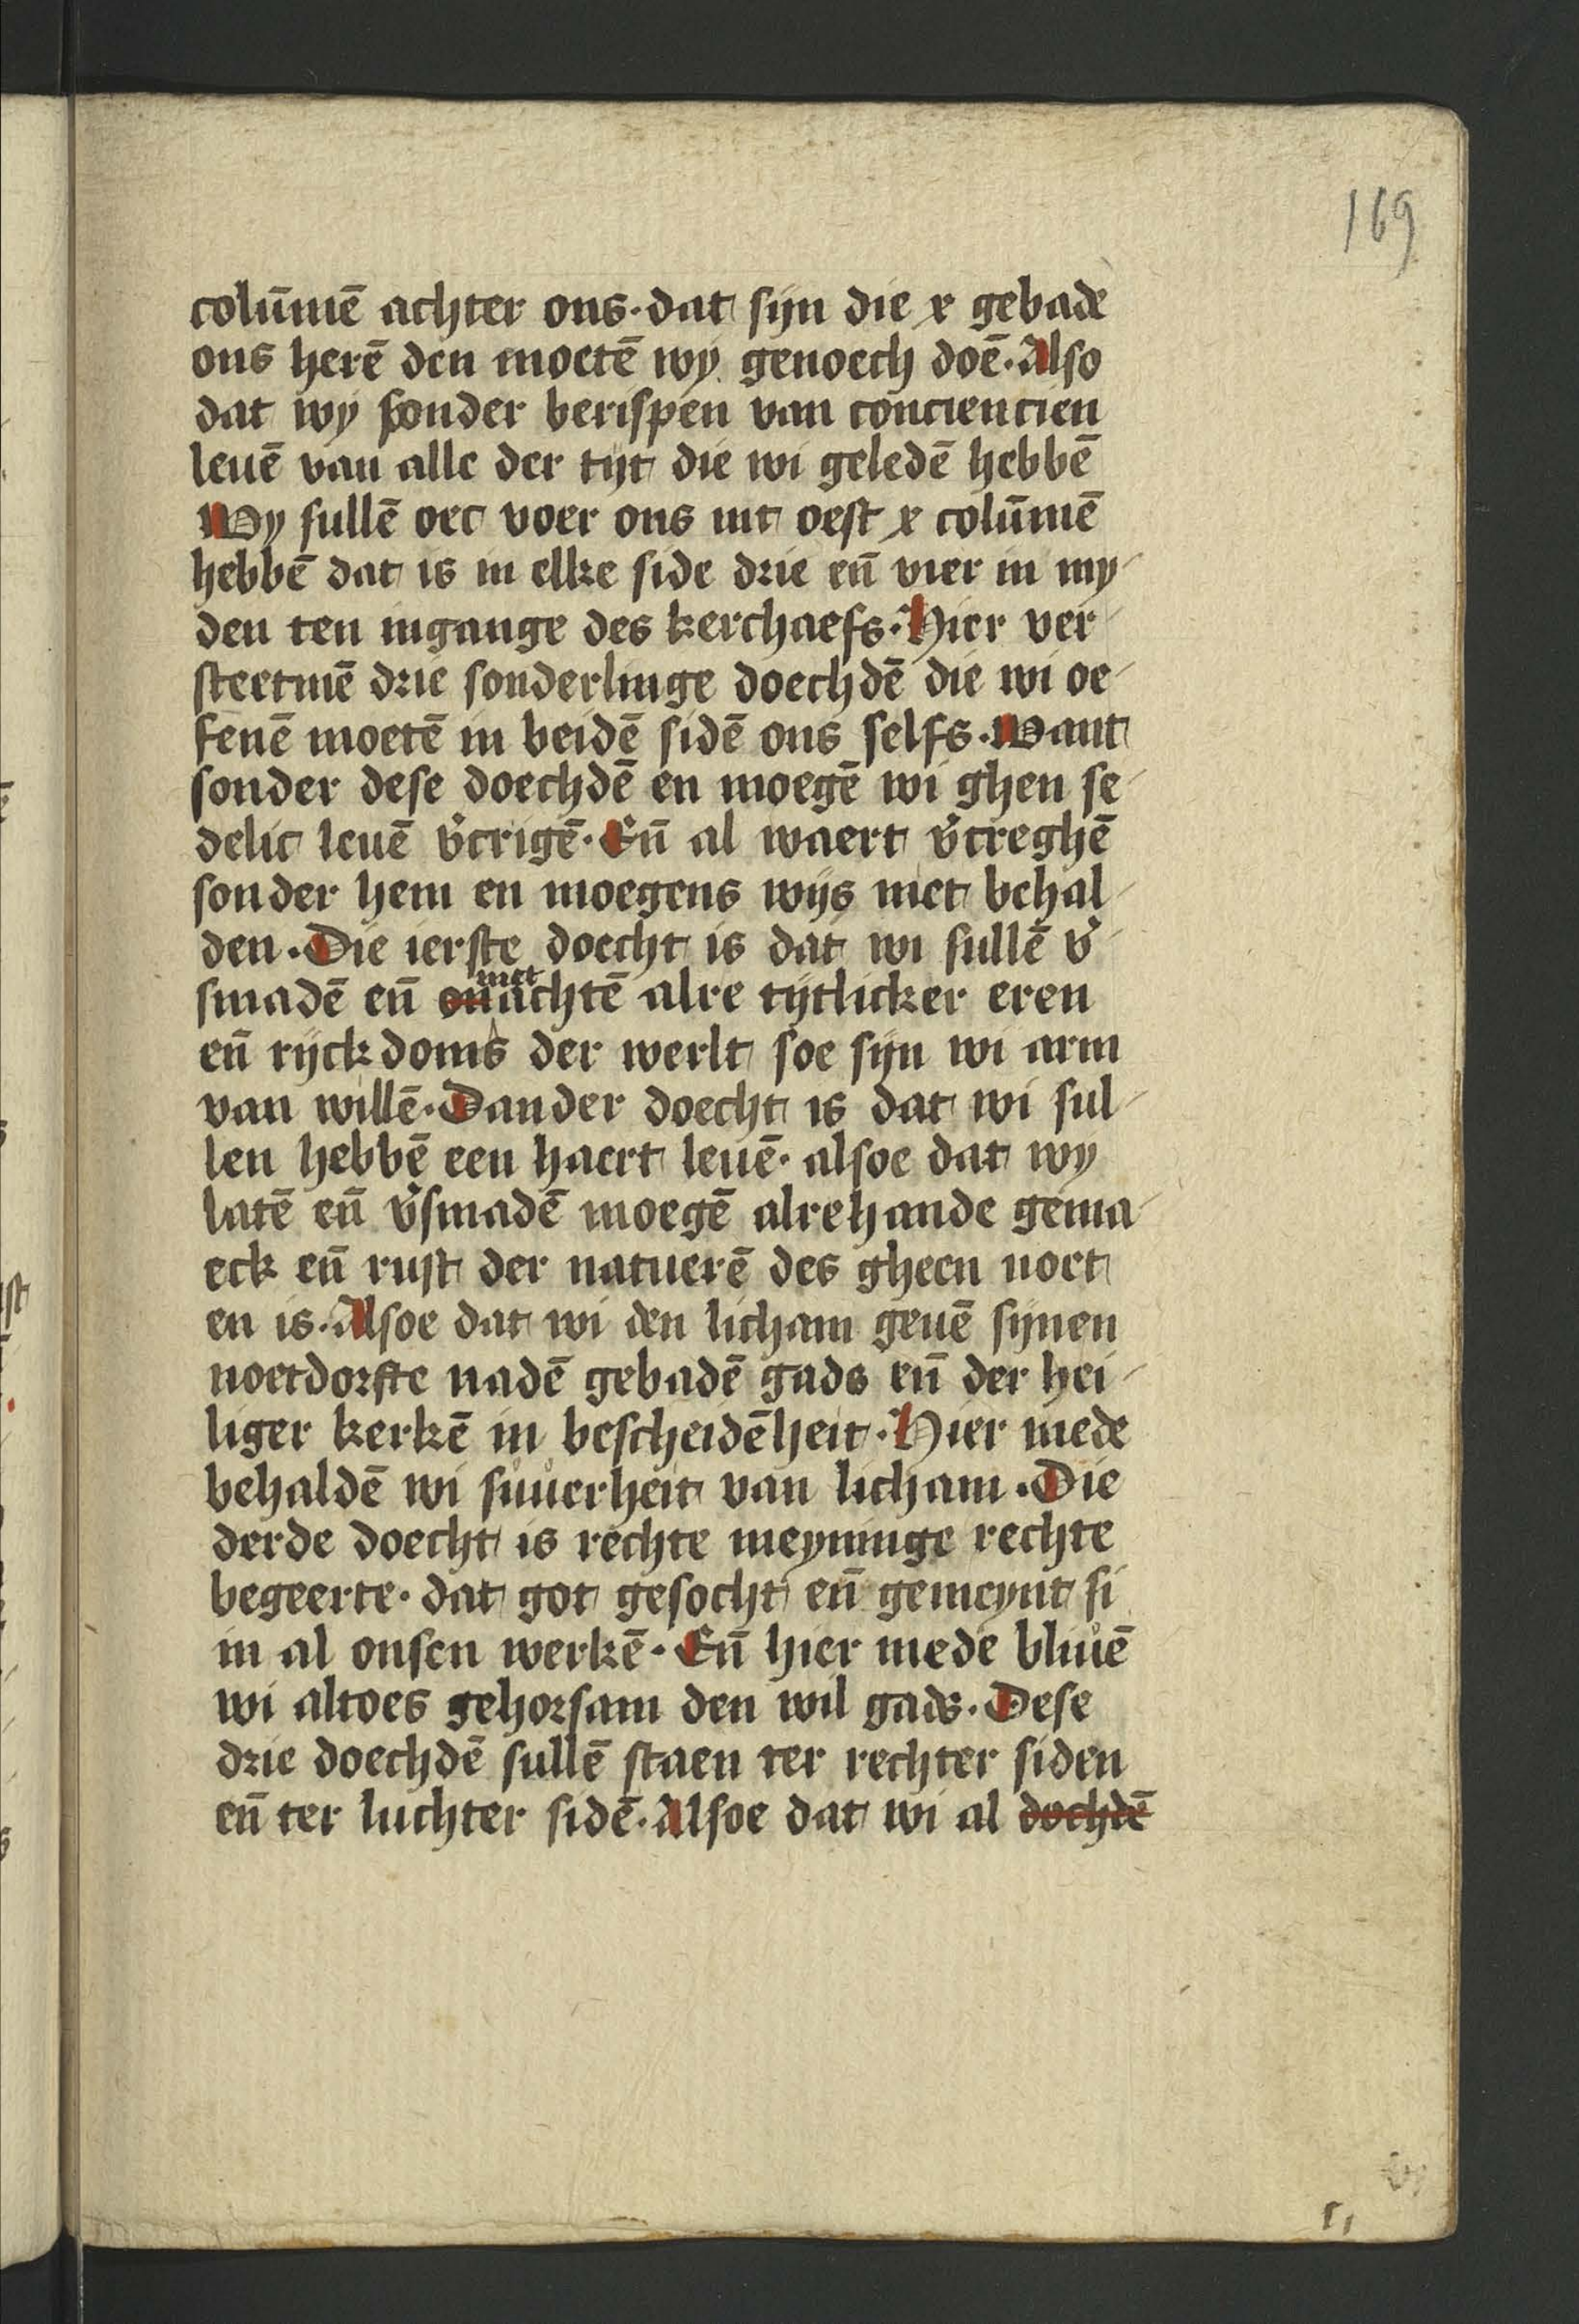 169
colūmē achter ons· dat sijn die x gebadē
ons herē den moetē wij genoech doē· Also
dat wij sonder berispen van conciencien
leuē van alle der tijt die wi geledē hebbē
Wy sullē oec voer ons int oest x colūmē
hebbē dat is in elke side drie eñ vier in my-
den ten ingange des kerchaefs· Hier ver-
steetmē drie sonderlinge doechdē die wi oe-
fenē moetē in beidē sidē ons selfs· Want
sonder dese doechdē en moegē wi ghen se-
delic leuē v̉crigē· Eñ al waert v̉creghē
sonder hem en moegens wijs niet behal-
den· Die ierste doecht is dat wi sullē v̉-
met
smadē eñ onachtē alre tijtlicker eren
eñ rijckdoms der werlt soe sijn wi arm
van willē· Dander doecht is dat wi sul-
len hebbē een haert leuē· alsoe dat wy
latē eñ v̉smadē moegē alrehande gema-
eck eñ rust der natuerē des gheen noet
en is· Alsoe dat wi den licham geuē sijnen
noetdorfte nadē gebadē gads eñ der hei-
liger kerkē in bescheidēheit· Hier mede
behaldē wi suuerheit van licham· Die
derde doecht is rechte meyninge rechte
begeerte· dat got gesocht eñ gemeynt si
in al onsen werkē· Eñ hier mede bliuē
wi altoes gehorsam den wil gads· Dese
drie doechdē sullē staen ter rechter siden
eñ ter luchter sidē· Alsoe dat wi al dochdē